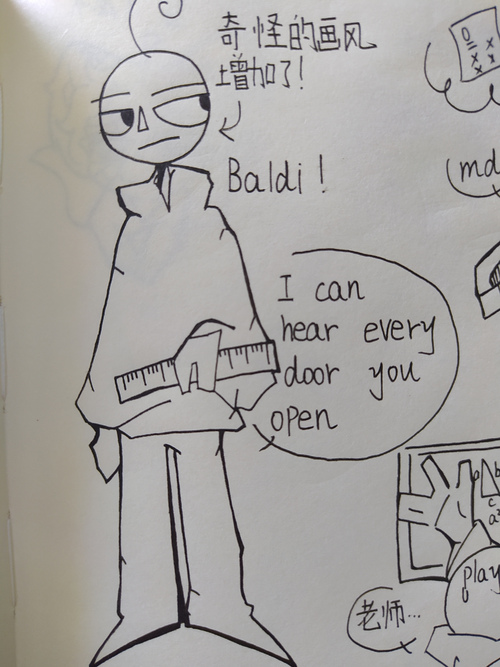 奇怪的画风
增加了!
Baldi!
I can
hear every
door you
open
md
play
老师...